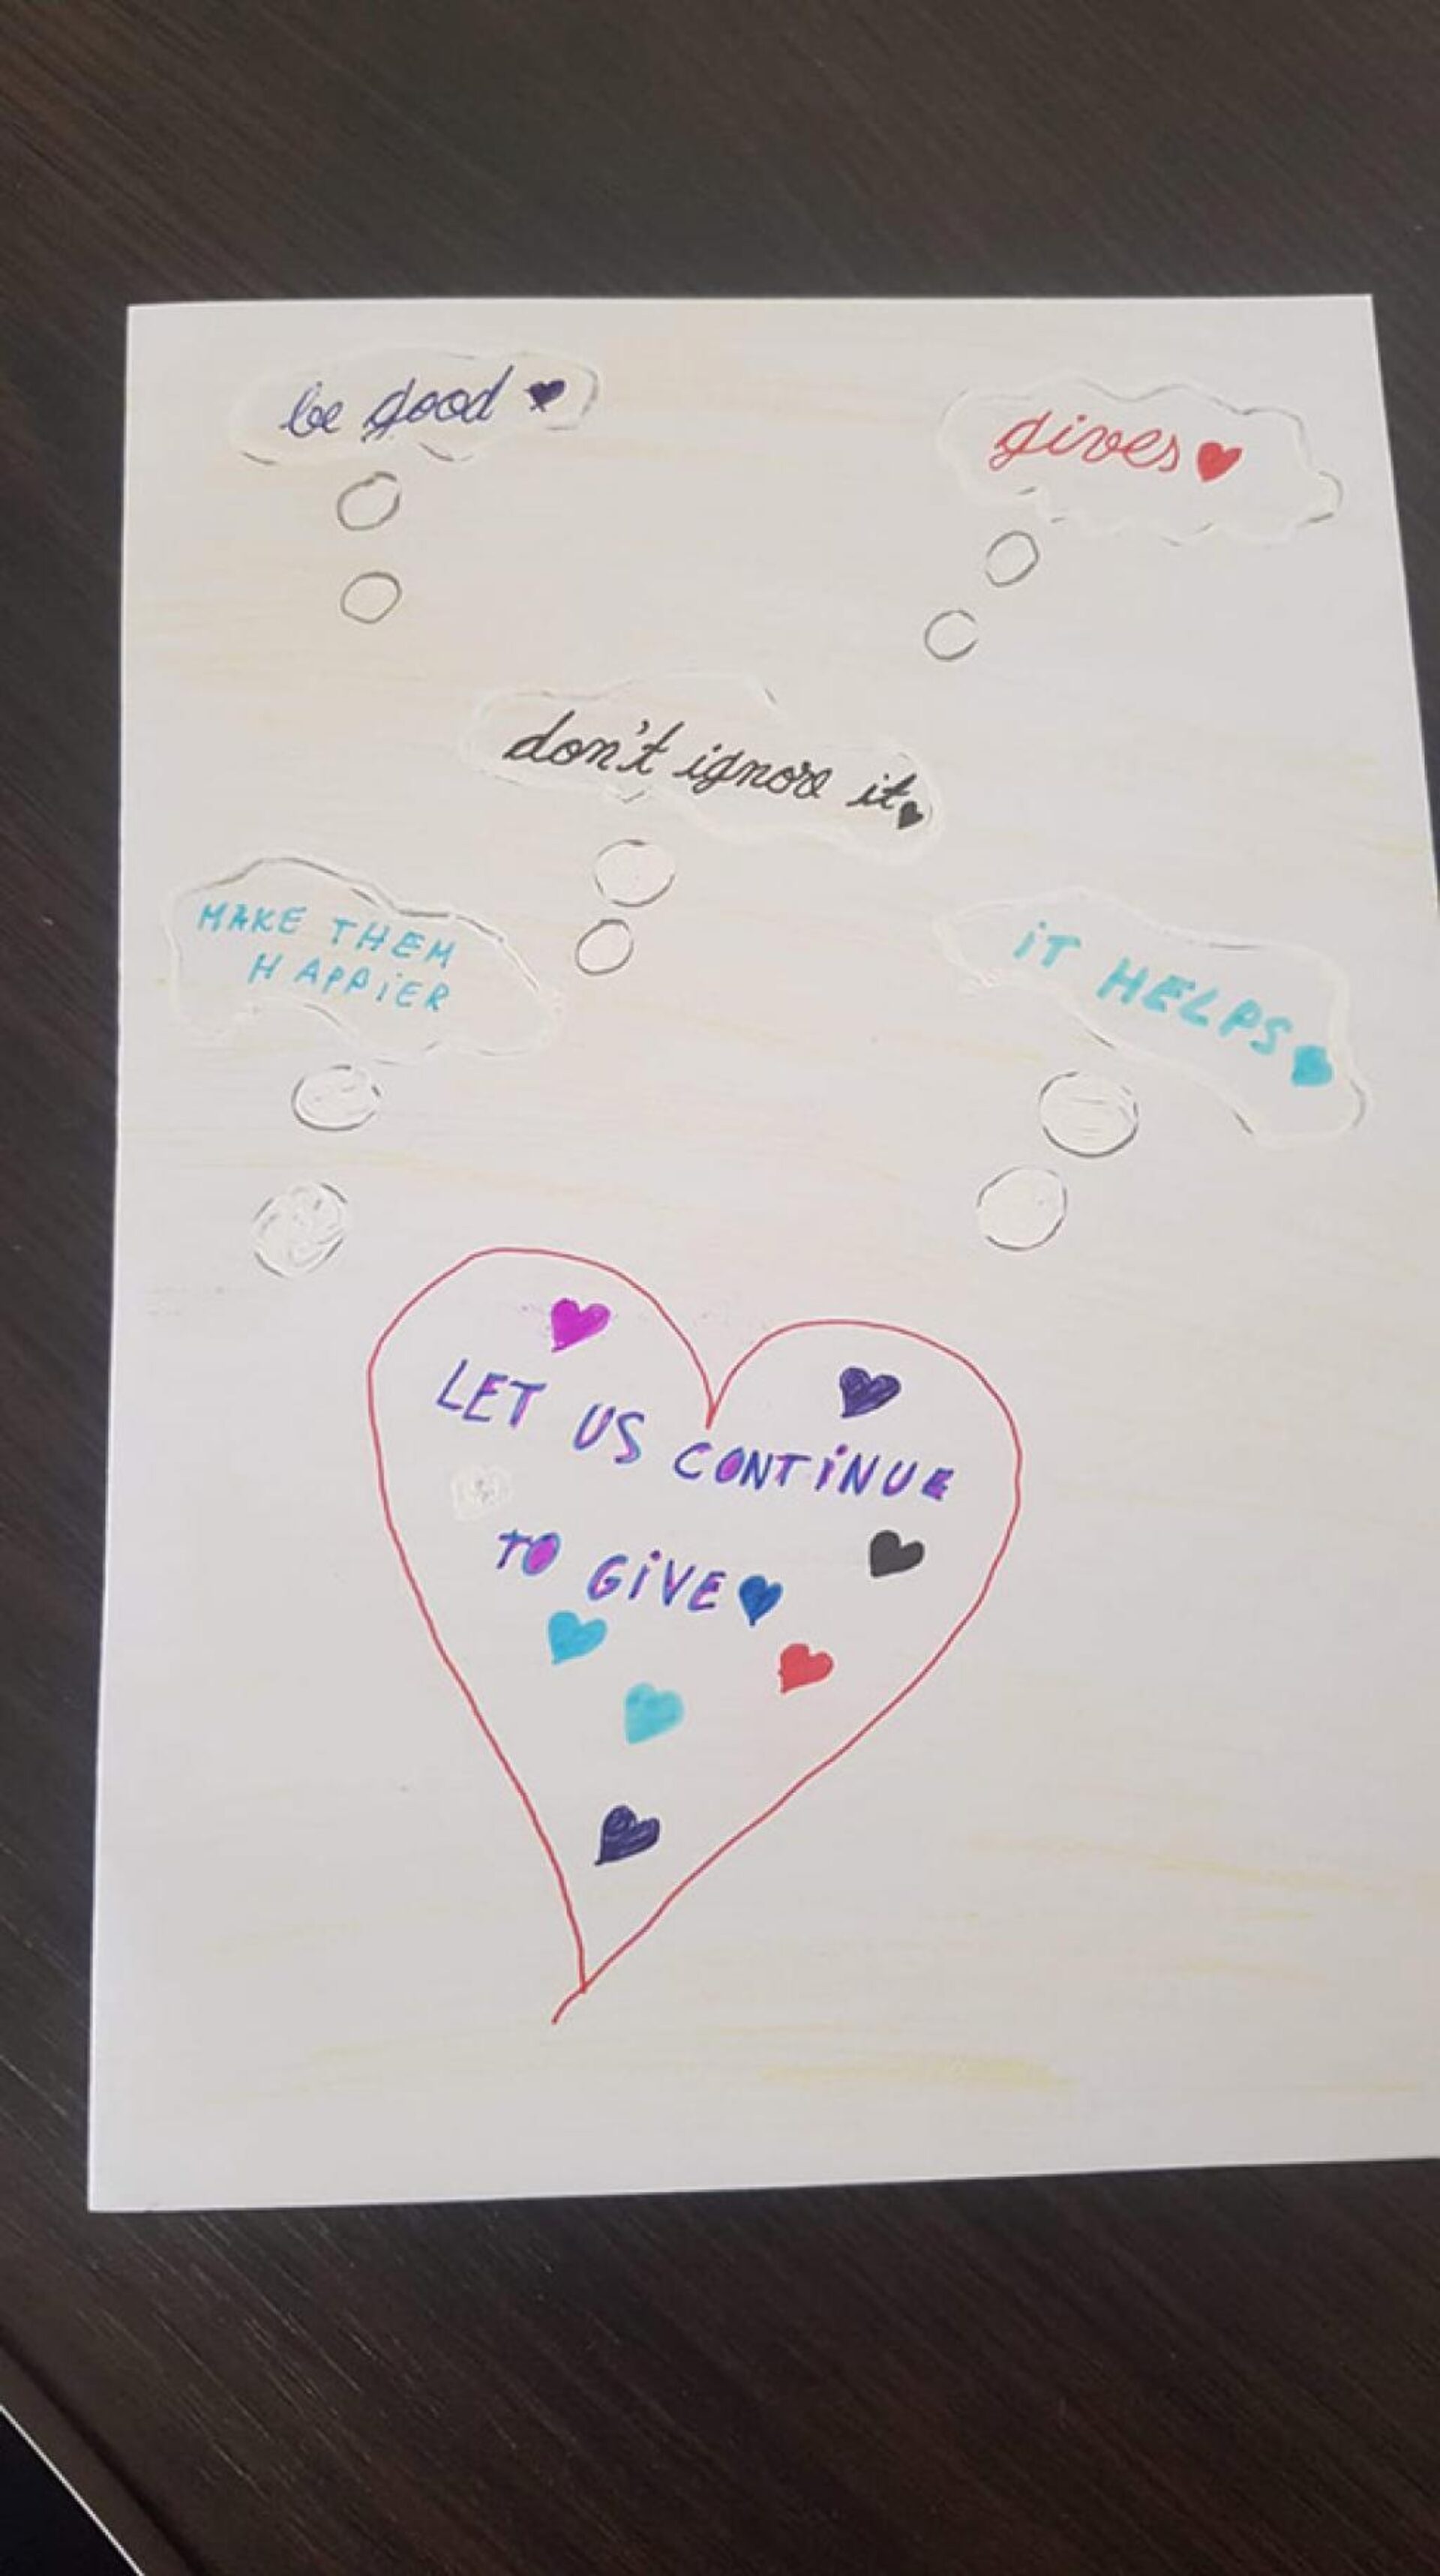 be good
gives
don't ignore it
MAKE THEM
HAPPiER
iT HELPS
LET US CONTiNUE
TO GiVE